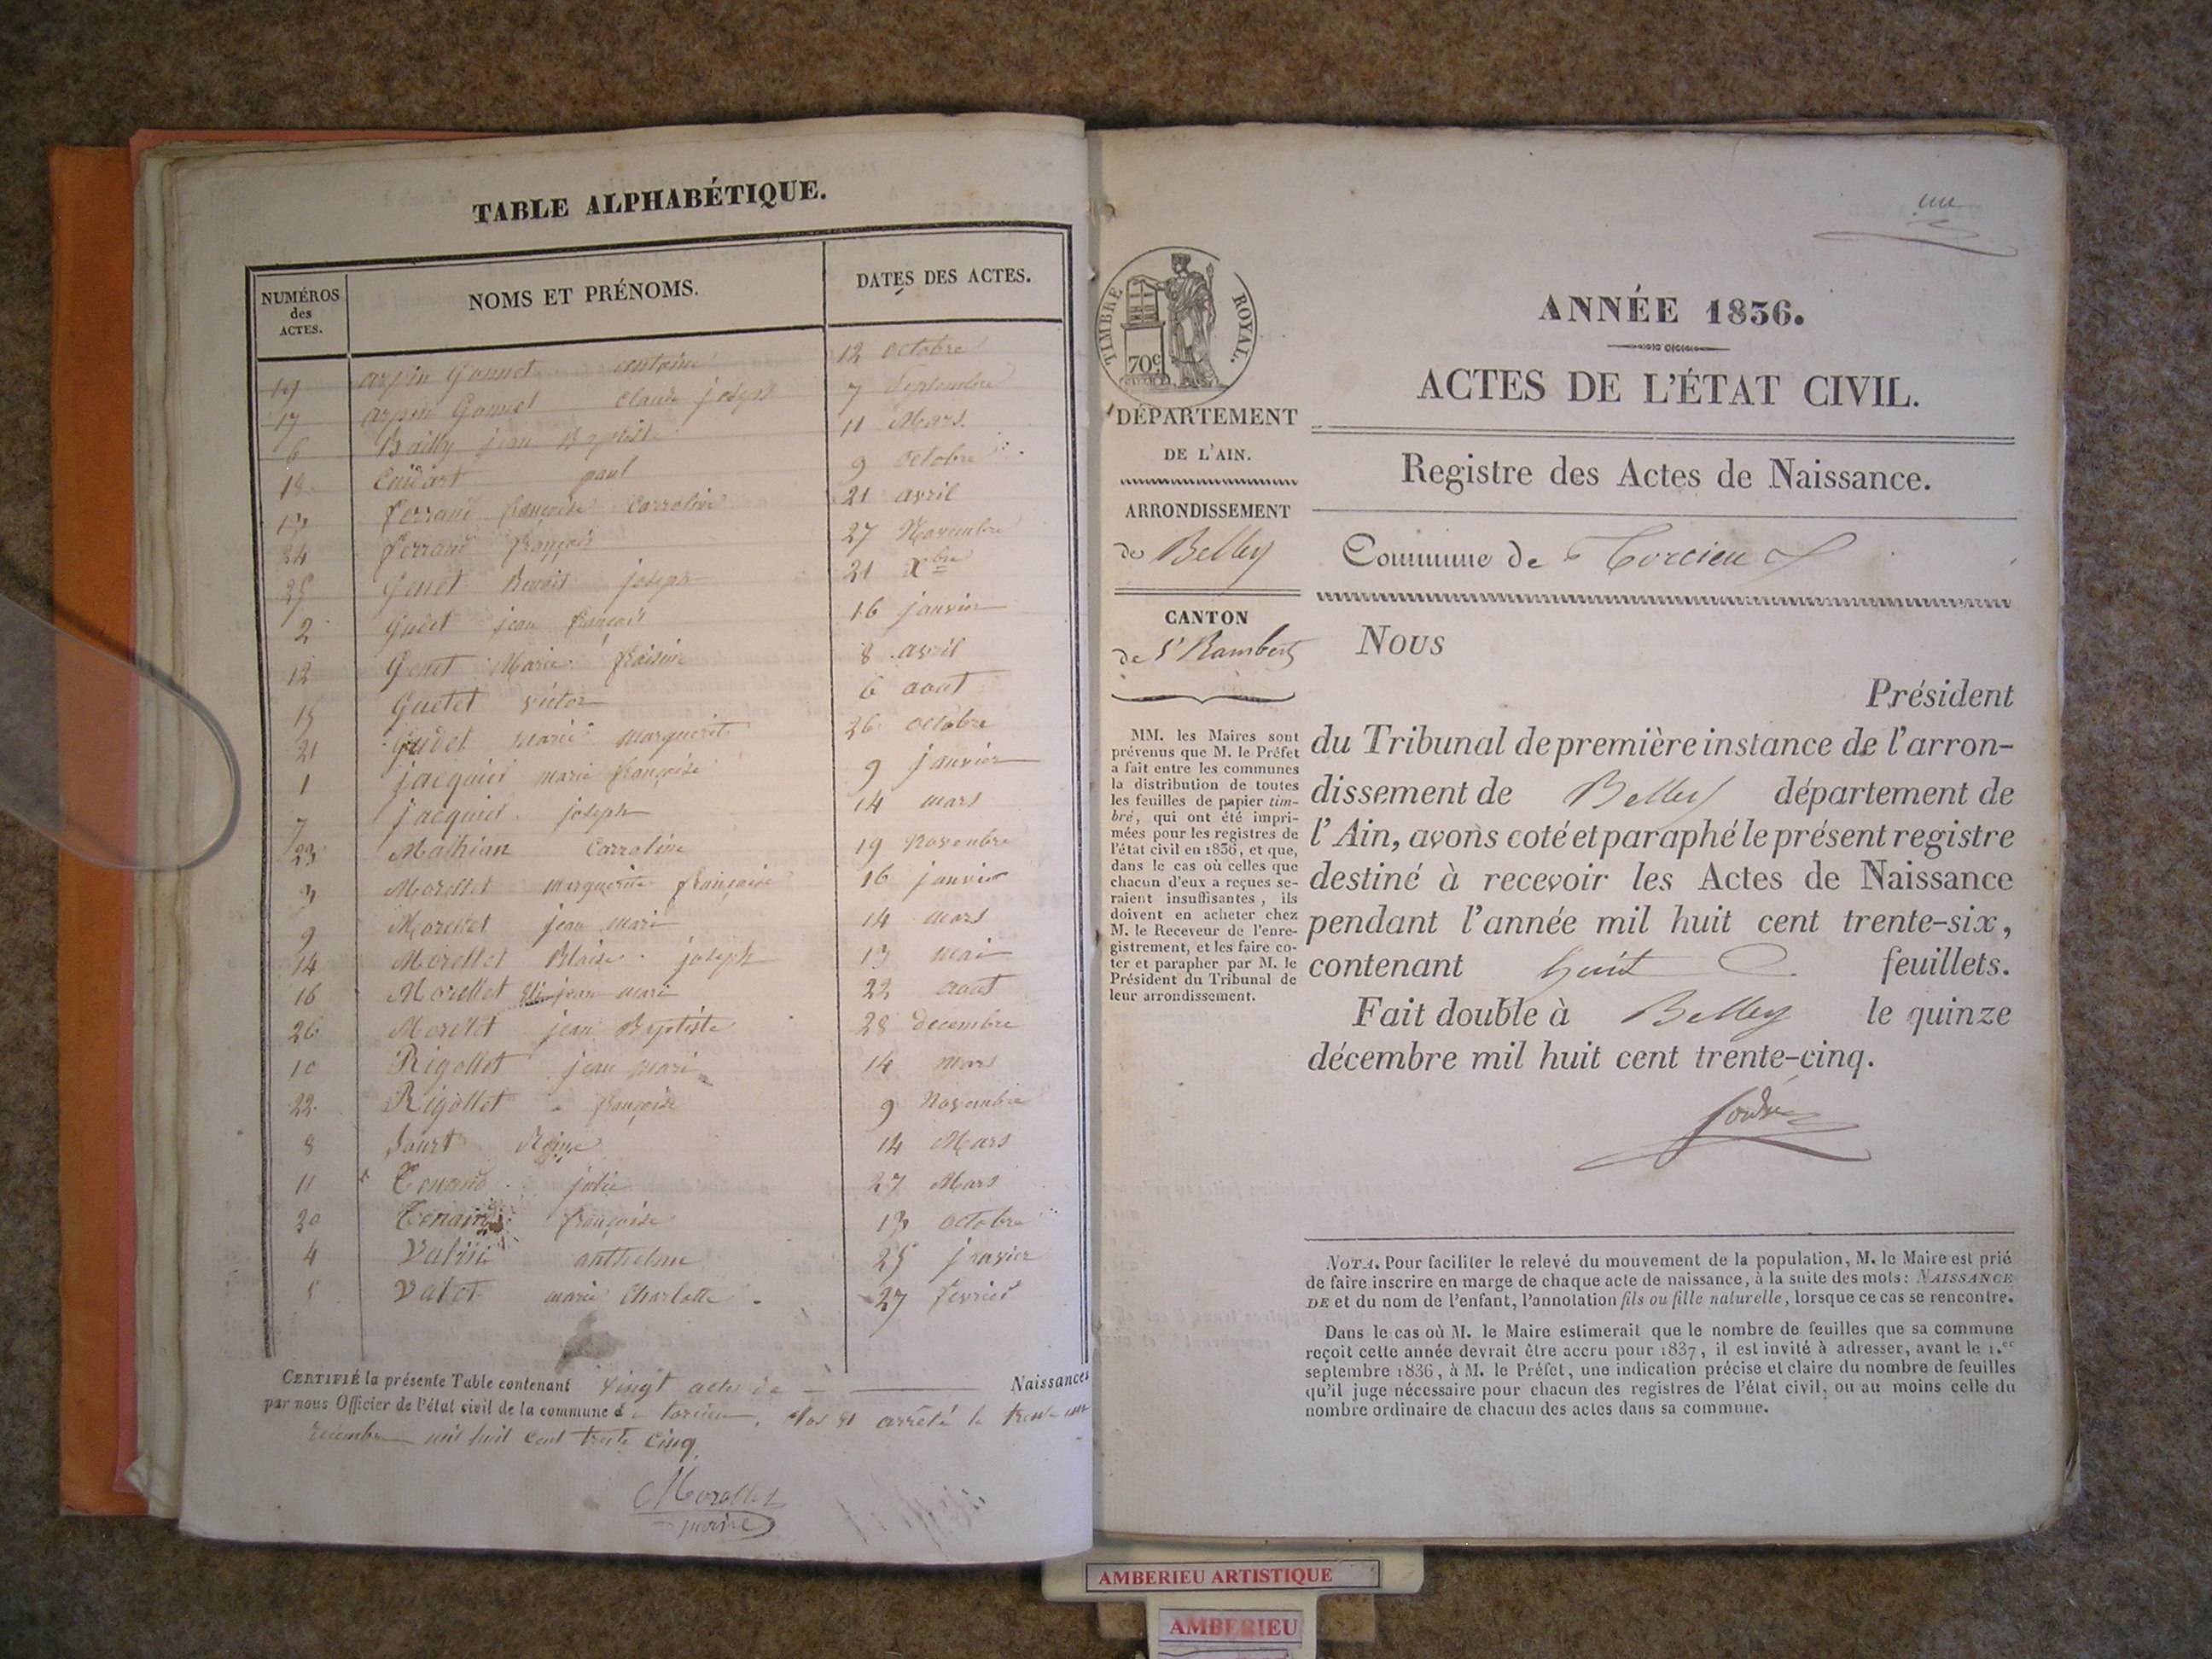 TABLE ALPHABÉTIQUE.
NUMÉROS des ACTES.
NOMS ET PRÉNOMS.
DATES DES ACTES.
19 arpin Gonnet antoine 12 octobre
17 arpin Gonnet Claude joseph 7 Septembre
6 Bailly jean Baptiste 11 Mars
18 paul 9 octobre
13 ferrand françoise Carroline 21 avril
24 ferrand françois 27 Novembre
25 Genet Benoit joseph 21 Xbre
2 jean françois 16 janvier
12 Genet Marie 8 avril
15 Guetet victor 6 aout
21 Gudet marie marguerite 26 octobre
1 jacquiet marie françoise 9 janvier
7 jacquiet joseph 14 mars
23 Mathian Carroline 19 Novembre
3 Morettet marguerite françoise 16 janvier
9 Morettet jean marie 14 mars
14 Morettet Blaise joseph 13 mai
16 Morettet jean marie 22 aout
26 Morettet jean Baptiste 28 decembre
10 Rigollet jean marie 14 mars
22 Rigollet françoise 9 Novembre
8 Reine 14 Mars
11 Tenand julie 27 Mars
20 Tenand françoise 13 octobre
4 anthelme 25 janvier
5 Valet marie Charlotte 27 fevrier
CERTIFIÉ la présente Table contenant vingt actes de Naissances
par nous Officier de l'état civil de la commune d torcieu. Clos et arrêté le trente un
decembre mil huit cent trente cinq
Morettet
maire
un
TIMBRE ROYAL.
70c
ANNÉE 1836.
ACTES DE L'ÉTAT CIVIL.
DÉPARTEMENT
DE L'AIN.
Registre des Actes de Naissance.
ARRONDISSEMENT
de Belley
Commune de Torcieu
CANTON
de St Rambert
MM. les Maires sont
prévenus que M. le Préfet
a fait entre les communes
la distribution de toutes
les feuilles de papier tim-
bré, qui ont été impri-
mées pour les registres de
l'état civil en 1836, et que,
dans le cas où celles que
chacun d'eux a reçues se-
raient insuffisantes, ils
doivent en acheter chez
M. le Receveur de l'enre-
gistrement, et les faire co-
ter et parapher par M. le
Président du Tribunal de
leur arrondissement.
Nous
Président
du Tribunal de première instance de l'arron-
dissement de Belley département de
l'Ain, avons coté et paraphé le présent registre
destiné à recevoir les Actes de Naissance
pendant l'année mil huit cent trente-six,
contenant huit feuillets.
Fait double à Belley le quinze
décembre mil huit cent trente-cinq.
NOTA. Pour faciliter le relevé du mouvement de la population, M. le Maire est prié
de faire inscrire en marge de chaque acte de naissance, à la suite des mots: NAISSANCE
DE et du nom de l'enfant, l'annotation fils ou fille naturelle, lorsque ce cas se rencontre.
Dans le cas où M. le Maire estimerait que le nombre de feuilles que sa commune
reçoit cette année devrait être accru pour 1837, il est invité à adresser, avant le 1.er
septembre 1836, à M. le Préfet, une indication précise et claire du nombre de feuilles
qu'il juge nécessaire pour chacun des registres de l'état civil, ou au moins celle du
nombre ordinaire de chacun des actes dans sa commune.
AMBERIEU ARTISTIQUE
AMBERIEU